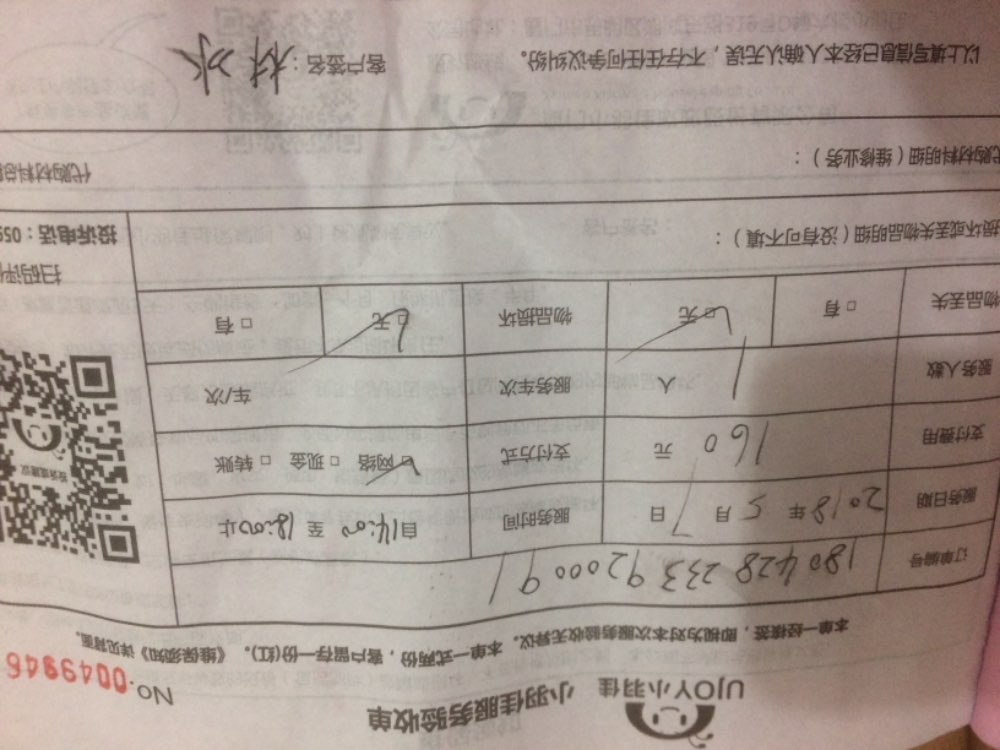 UJOY小羽佳 小羽佳服务验收单
No.0049946
本单一经接签，即视为对本次服务验收无异议。本单一式两份，客户留存一份(红)。《维保须知》详见背面。
订单编号 180428233920009 1
服务日期 2018年5月7日 服务时间 自14:00至18:00止
支付费用 160 元 支付方式 □网络 □现金 □转账
服务人数 1 人 服务车次 车/次
物品丢失 □有 □无 物品损坏 □无 □有
投诉建议
扫码评
损坏或丢失物品明细（没有可不填）：
投诉电话：059
代购材料明细（维修业务）：
代购材料总
以上填写信息已经本人确认无误，不存在任何争议纠纷。 客户签名：林冰